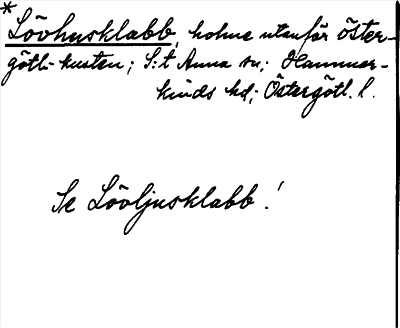 * Lövhusklabb, holme utanför öster-
götl-kusten; S:t Anna sn; Hammar-
kinds hd; Östergötl. l.
Se Lövljusklabb!